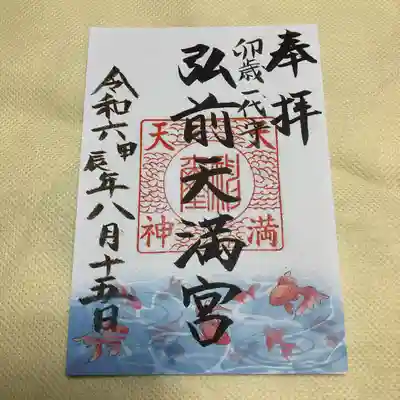 奉拝
卯歳一代宗
弘前天満宮
令和六甲辰年八月十五日
天満
天神